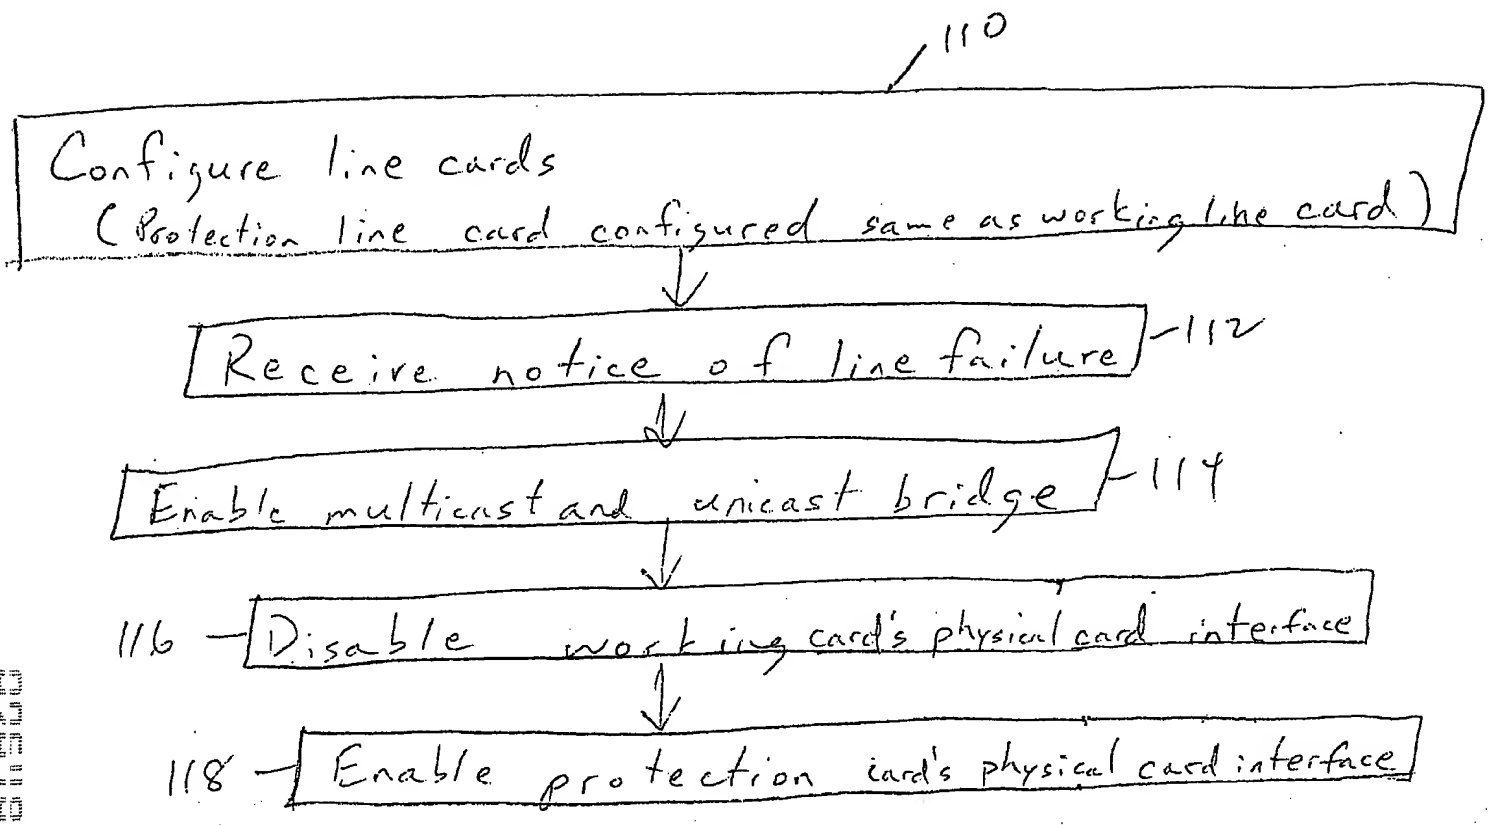 110
Configure line cards
(Protection line card configured same as working line card)
Receive notice of line failure
112
Enable multicast and unicast bridge
114
116
Disable working card's physical card interface
118
Enable protection card's physical card interface